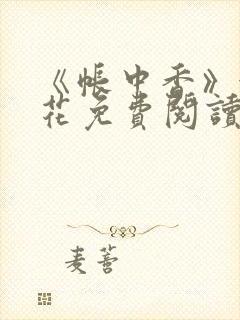 《帳中香》
花免費閱讀
麦蓄